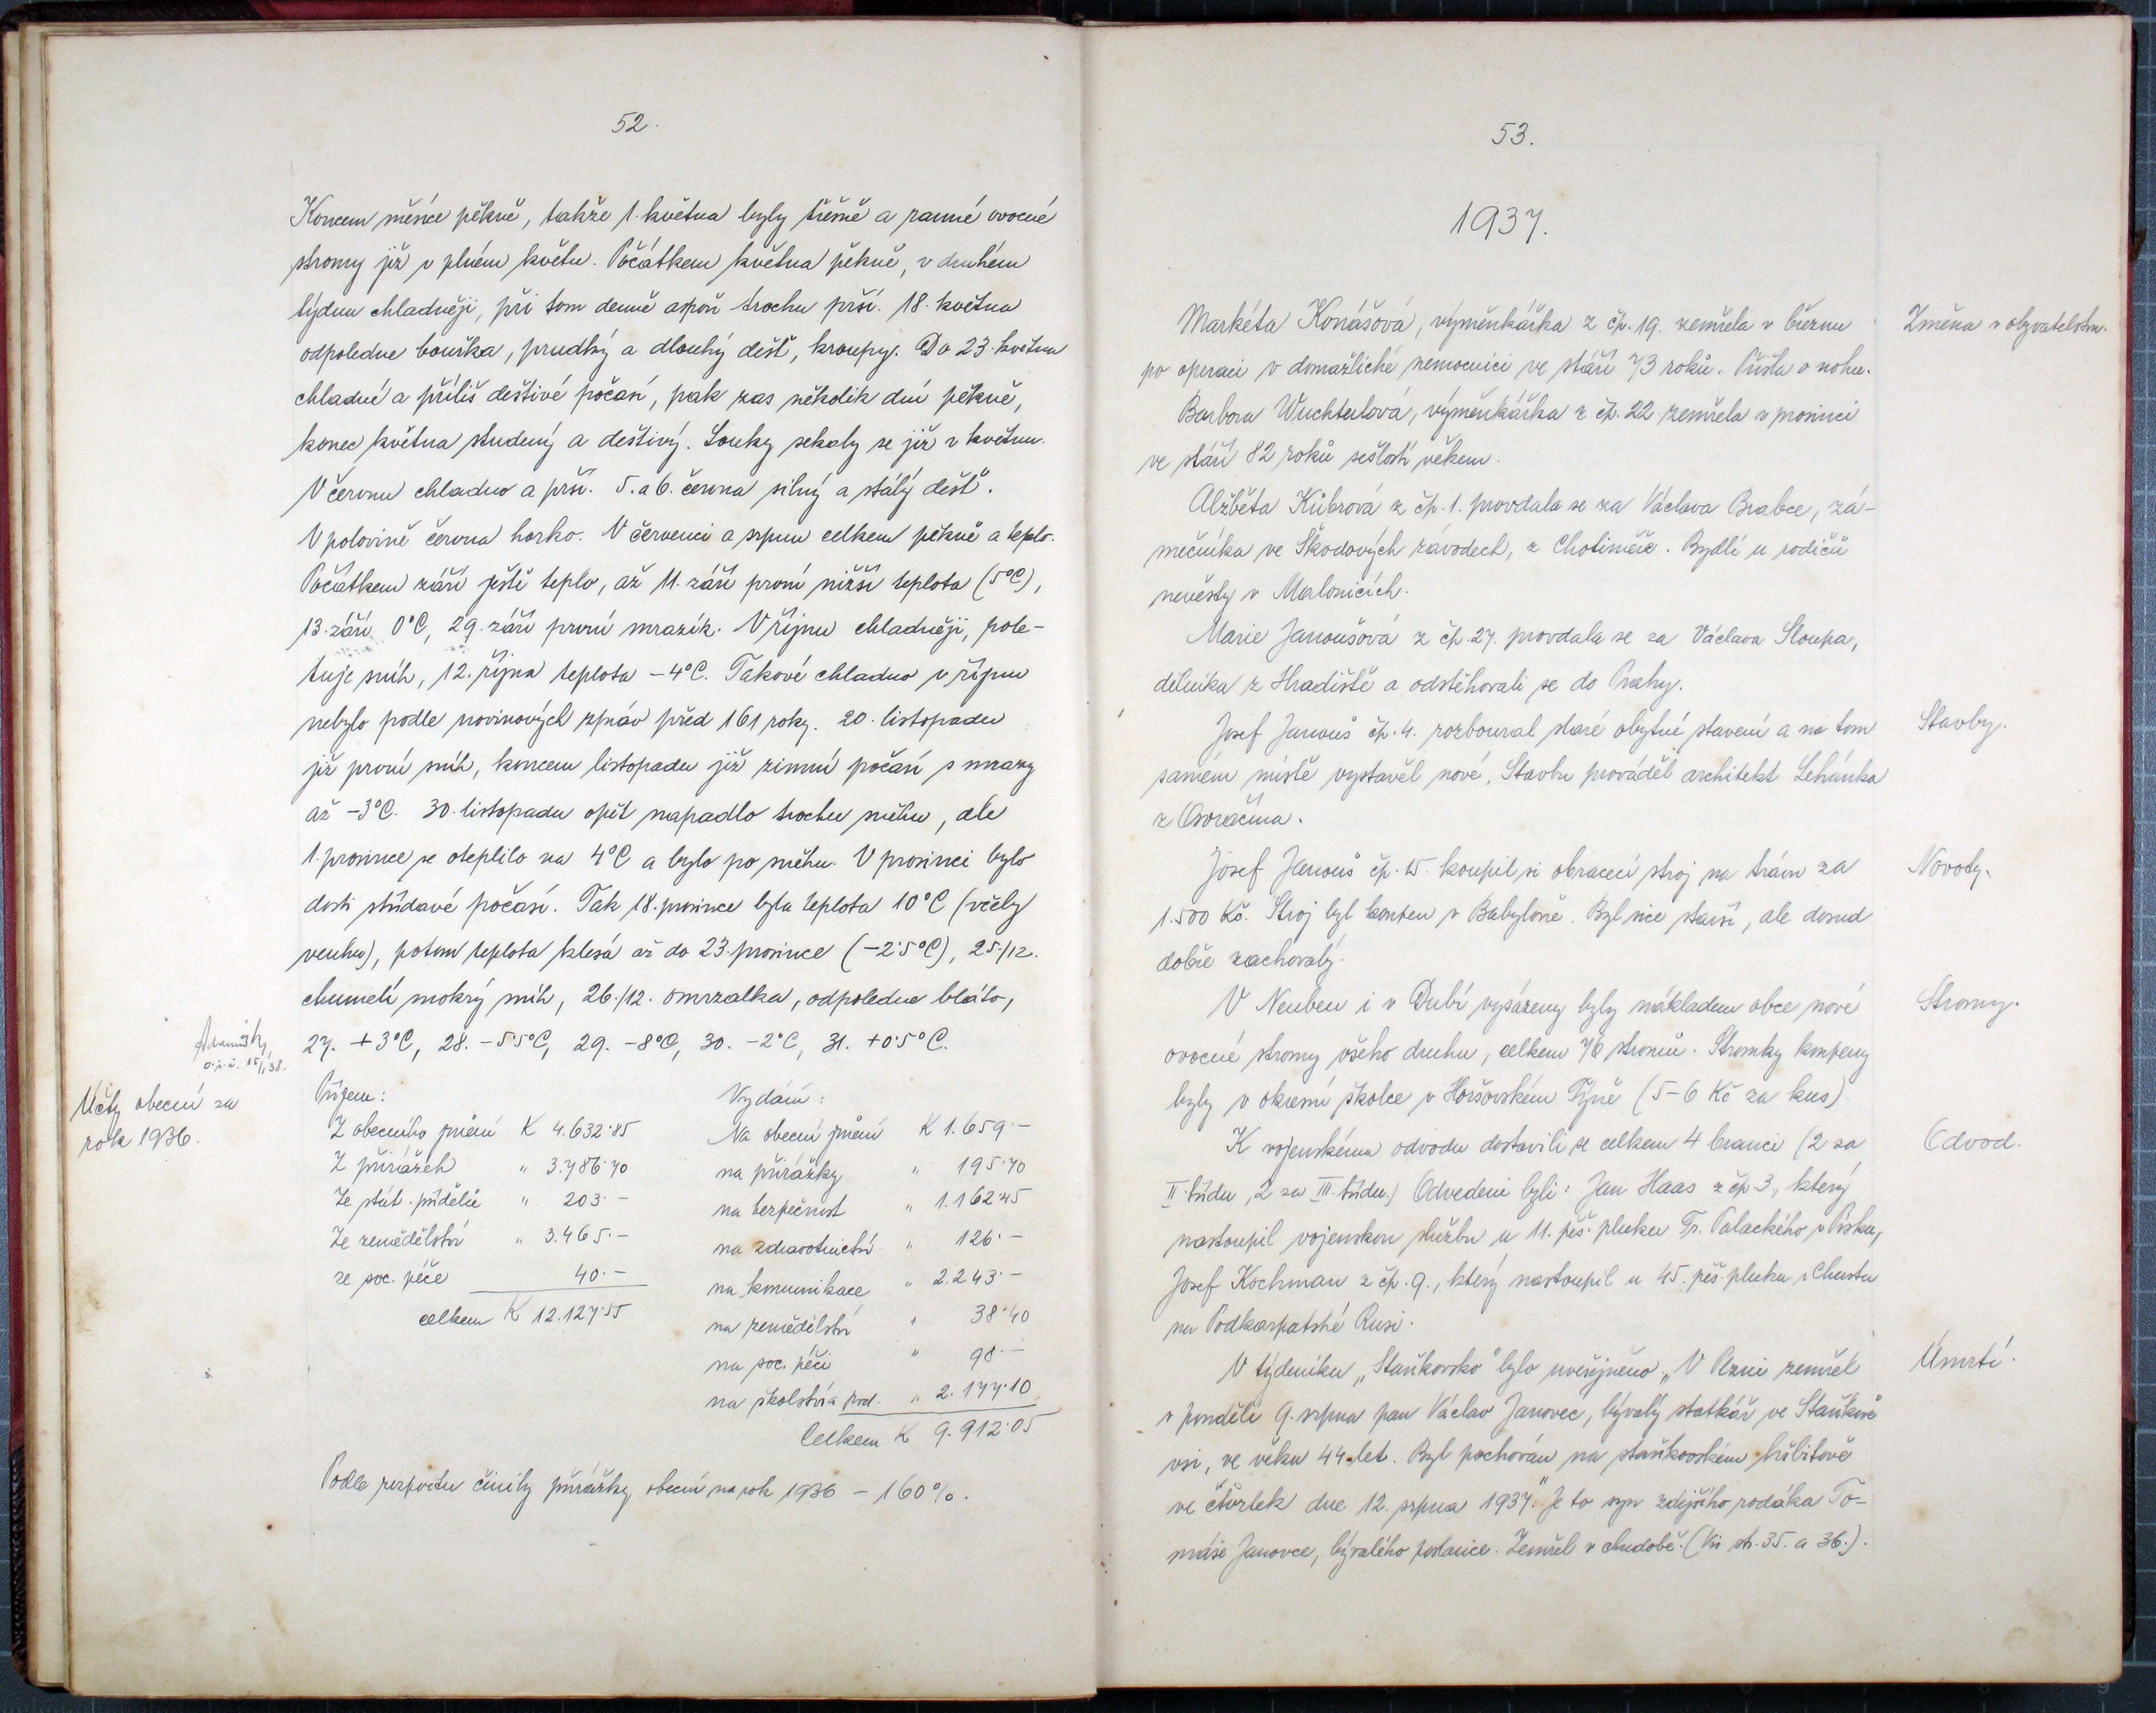 52.
Koncem měsíce pěkně, takže 1. května byly třešně a ranné ovocné
stromy již v plném květu. Počátkem května pěkně, v druhém
týdnu chladněji, při tom denně aspoň trochu prší. 18. května
odpoledne bouřka, prudký a dlouhý déšť, kroupy. Do 23. května
chladné a příliš deštivé počasí, pak zas několik dní pěkně,
konec května studený a deštivý. Louky sekaly se již v květnu.
V červnu chladno a prší. 5. a 6. června silný a stálý déšť.
V polovině června horko. V červenci a srpnu celkem pěkně a teplo.
Počátkem září ještě teplo, až 11. září první nižší teplota (5°C),
13. září 0°C, 29. září první mrazík. V říjnu chladněji, pole-
tuje sníh, 12. října teplota -4°C. Takové chladno v říjnu
nebylo podle novinových zpráv před 161 roky. 20. listopadu
již první sníh, koncem listopadu již zimní počasí s mrazy
až -3°C. 30. listopadu opět napadlo trochu sněhu, ale
1. prosince se oteplilo na 4°C a bylo po sněhu. V prosinci bylo
dosti střídavé počasí. Tak 18. prosince byla teplota 10°C (včely
venku), potom teplota klesá až do 23. prosince (-2·5°C), 25./12.
chumelí mokrý sníh, 26./12. omrzalka, odpoledne bláto,
27. +3°C, 28. -5·5°C, 29. -8°C, 30. -2°C, 31. +0·5°C.
15/1 38.
Účty obecní za
rok 1936.
Příjem: Vydání:
Z obecního jmění K 4.632·85 Na obecní jmění K 1.659·-
Z přirážek " 3.786·70 na přirážky " 195·70
Ze stát. přídělů " 203·- na bezpečnost " 1.162·45
Ze zemědělství " 3.465·- na zdravotnictví " 126·-
ze soc. péče 40·- na komunikace " 2.243·-
celkem K 12.127·55 na zemědělství " 38·40
na soc. péči " 98·-
na školství a pod. " 2.177·10
Celkem K 9.912·05
Podle rozpočtu činily přirážky obecní na rok 1936 - 160%.
53.
1937.
Změna v obyvatelstvu.
Markéta Konášová, výměnkářka z čp. 19. zemřela v březnu
po operaci v domažlické nemocnici ve stáří 73 roků. Přišla o nohu.
Barbora Wuchterlová, výměnkářka z čp. 22. zemřela v prosinci
ve stáří 82 roků sešlostí věkem.
Alžběta Kübrová z čp. 1. provdala se za Václava Brabce, zá-
mečníka ve Škodových závodech, z Chotiměře. Bydlí u rodičů
nevěsty v Mlonicích.
Marie Janoušová z čp. 27. provdala se za Václava Sloupa,
dělníka z Hradiště a odstěhovali se do Prahy.
Stavby.
Josef Janouš čp. 4. rozboural staré obytné stavení a na tom
samém místě vystavěl nové. Stavbu prováděl architekt Lehánka
z Osvračína.
Novoty.
Josef Janouš čp. 15. koupil si obracecí stroj na trávu za
1.500 Kč. Stroj byl koupen v Babyloně. Byl sice starší, ale dosud
dobře zachovalý.
Stromy.
V Neuben i v Dubí vysázeny byly nákladem obce nové
ovocné stromy všeho druhu, celkem 76 stromů. Stromky koupeny
byly v okresní školce v Horšovském Týně (5-6 Kč za kus).
Odvod.
K vojenskému odvodu dostavili se celkem 4 branci (2 za
II. třídu, 2 za III. třídu.) Odvedeni byli: Jan Haas z čp. 3., který
nastoupil vojenskou službu u 11. pěš. pluku Fr. Palackého v Písku,
Josef Kochman z čp. 9., který nastoupil u 45. pěš. pluku v Chustu
na Podkarpatské Rusi.
Úmrtí.
V týdeníku „Staňkovsko" bylo uveřejněno „V Plzni zemřel
v pondělí 9. srpna pan Václav Janovec, bývalý statkář ve Staňkově
vsi, ve věku 44 let. Byl pochován na staňkovském hřbitově
ve čtvrtek dne 12. srpna 1937." Je to syn zdejšího rodáka To-
máše Janovce, bývalého poslance. Zemřel v chudobě. (Viz str. 35. a 36.).